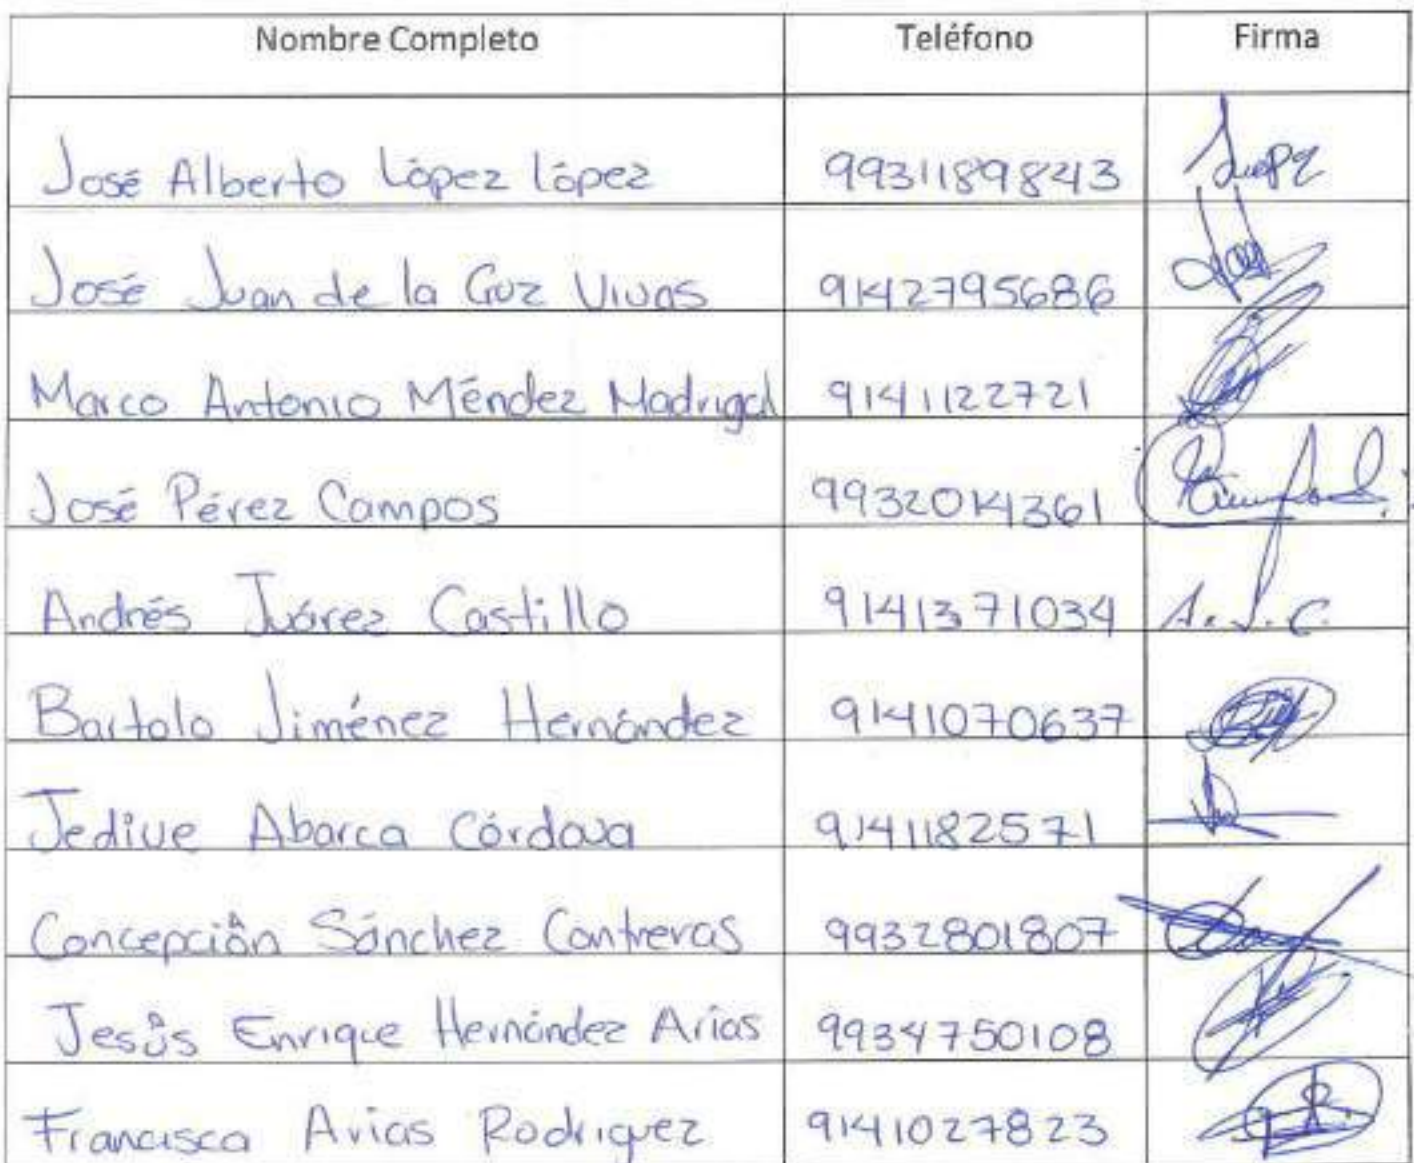 Nombre Completo Teléfono Firma
José Alberto López López 9931189843
José Juan de la Cruz Vivas 9142795686
Marco Antonio Méndez Madrigal 9141122721
José Pérez Campos 9932014361
Andrés Juárez Castillo 9141371034 A. J. C.
Bartolo Jiménez Hernández 9141070637
Jediue Abarca Córdova 9141182571
Concepción Sánchez Contreras 9932801807
Jesús Enrique Hernández Arias 9934750108
Francisca Arias Rodriguez 9141027823